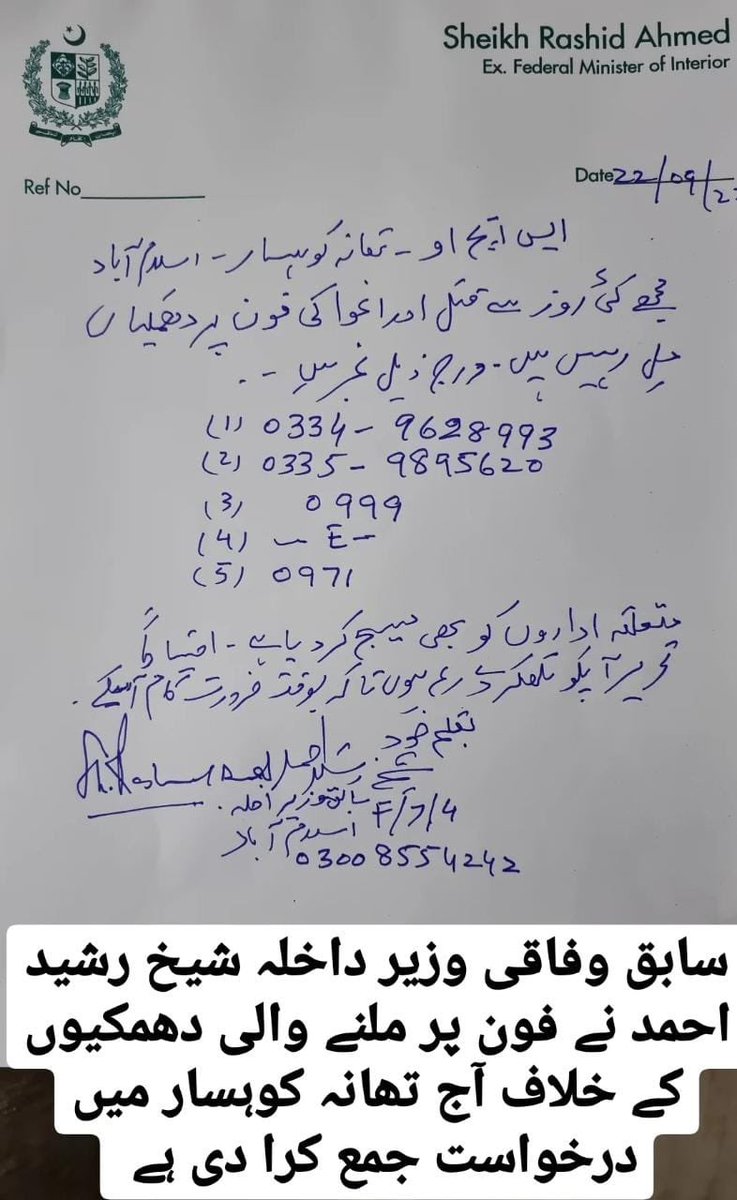 Sheikh Rashid Ahmed
Ex. Federal Minister of Interior
Ref No
Date 22/09/2
ایس ایچ او - تھانہ کوہسار - اسلام آباد
مجھے کئی روز سے قتل اور اغوا کی فون پر دھمکیاں
مل رہیں ہیں - درج ذیل نمبر ہیں - .
(1) 0334 - 9628993
(2) 0335 - 9895620
(3) 0999
(4) - E -
(5) 0971
متعلقہ اداروں کو بھی میسج کر دیا ہے -
تحریر آپکو لکھکر دے رہا ہوں تاکہ بوقت ضرورت کام آسکے .
بقلم خود .
شیخ رشید احمد
سابق وزیر داخلہ .
F/7/4
اسلام آباد
03008554242
سابق وفاقی وزیر داخلہ شیخ رشید
احمد نے فون پر ملنے والی دھمکیوں
کے خلاف آج تھانہ کوہسار میں
درخواست جمع کرا دی ہے